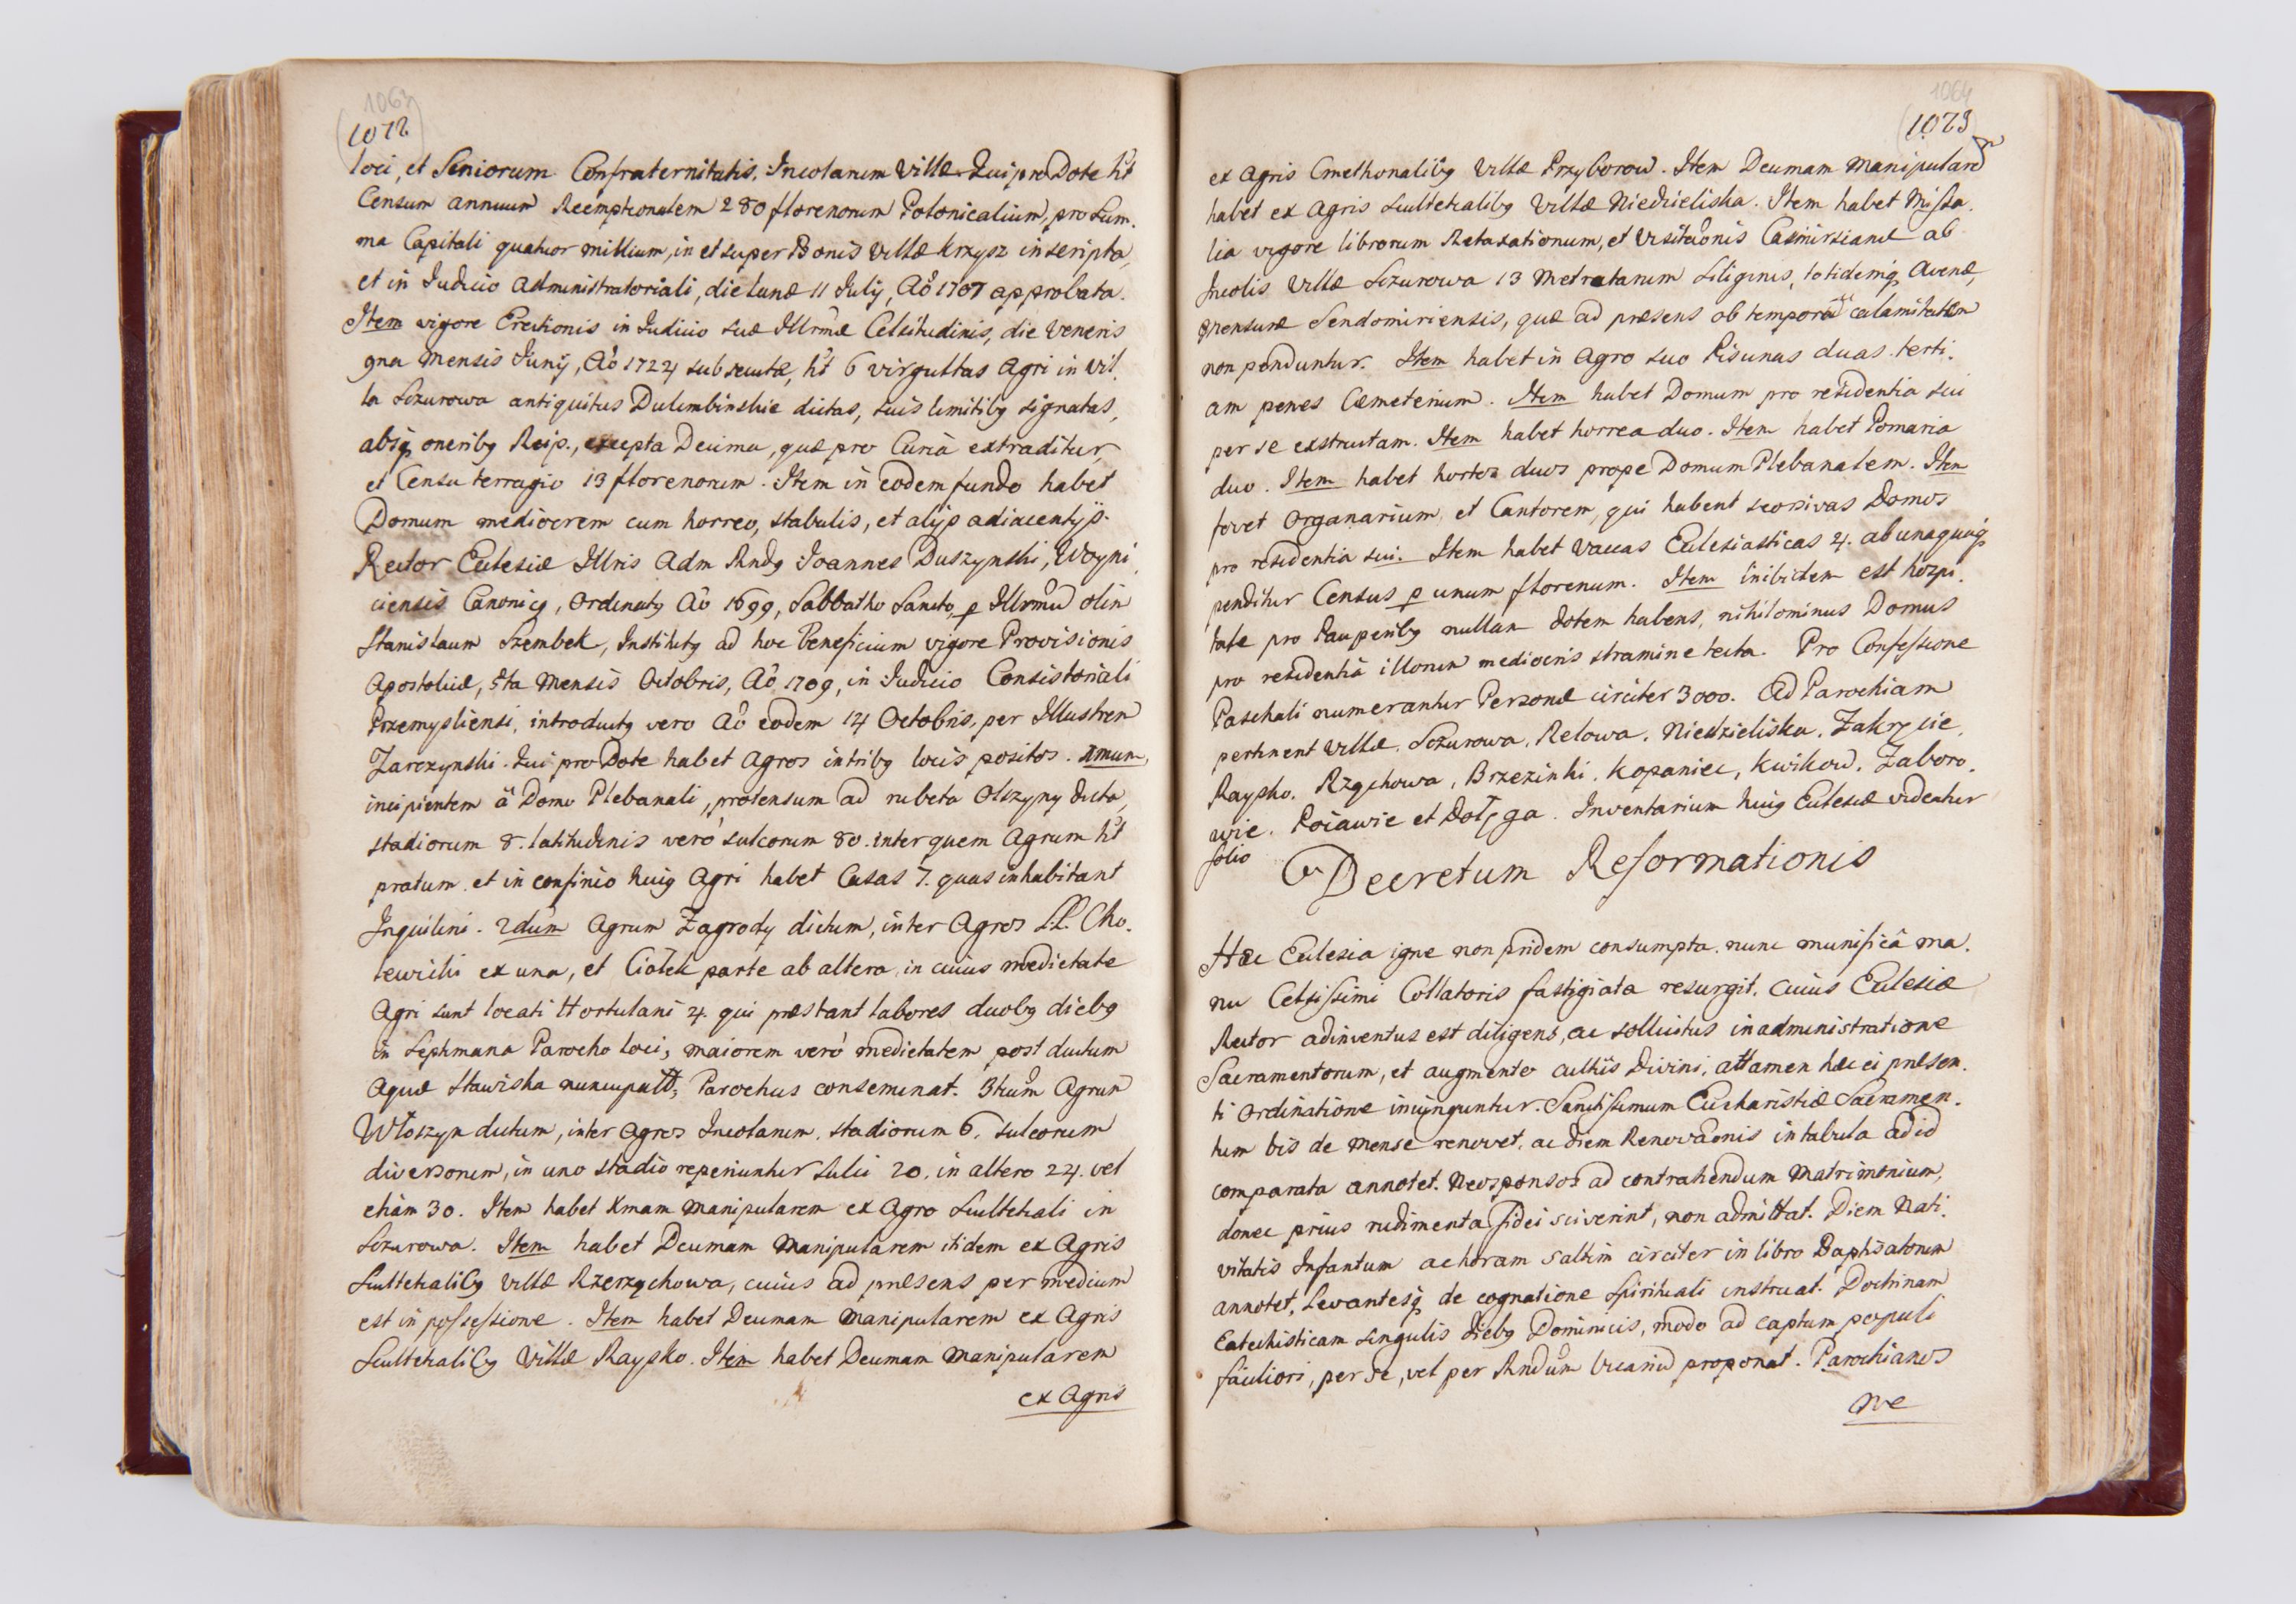 1063
1072
loci, et Seniorum Confraternitatis, Incolarum Villæ. Qui pro Dote ht
Censum annuum Reemptionalem 280 florenorum Polonicalium, pro Sum-
ma Capitali quatuor millium, in et super Bonis Villæ Krzysz inscripta,
et in Judicio Administratoriali, die Lunæ 11 July, Aô 1707 approbata.
Item vigore Erectionis in Judicio Suæ Illrmæ Celsitudinis, die Veneris
9na Mensis Junij, Aô 1724 subsecutæ, ht 6 virgultas Agri in Vil-
la Szczurowa antiquitus Dulembinskie dictas, suis limitibq signatas,
absq oneribq Reip., excepta Decima, quæ pro Curiâ extraditur,
et Censu terragio 13 florenorum. Item in eodem fundo habet
Domum mediocrem cum horreo, stabulis, et alijs adiacentijs.
Rector Ecclesiæ Illris Adm Rndq Joannes Duszynski, Woyni-
ciensis Canonicq, Ordinatq Aô 1699, Sabbatho Sancto, p Illrmum olim
Stanislaum Szembek, Institutq ad hoc Beneficium vigore Provisionis
Apostolicæ, 5ta Mensis Octobris, Aô 1709, in Judicio Consistoriali
Przemysliensi, introductq vero Aô eodem 14 Octobris, per Illustrem
Zarczynski. Qui pro Dote habet Agros in tribq locis positos. 1mum,
incipientem â Domo Plebanali, protensum ad rubeta Olszyny dicta,
stadiorum 8. latitudinis verò sulcorum 80. inter quem Agrum ht
pratum, et in confinio huiq Agri habet Casas 7. quas inhabitant
Inquilini. 2dum Agrum Zagrody dictum, inter Agros LL. Cho-
lewicki ex una, et Ciołek parte ab altera, in cuius medietate
Agri sunt locati Hortulani 4. qui præstant labores duobq diebq
in Septimana Parocho loci, maiorem verò medietatem post ductum
Aquæ Stawiska nuncupatæ, Parochus conseminat. 3tium Agrum
Włoszyn dictum, inter Agros Incolarum, stadiorum 6, sulcorum
diversorum, in uno stadio reperiuntur Sulci 20. in altero 24. vel
etiam 30. Item habet Xmam manipularem ex Agro Scultetiali in
Szczurowa. Item habet Decimam Manipularem itidem ex Agris
Scultetialibq Villæ Rzerzychowa, cuius ad præsens per medium
est in possessione. Item habet Decimam Manipularem ex Agris
Scultetialibq Villæ Raysko. Item habet Decimam Manipularem
ex Agris
1064
1073
ex Agris Cmethonalibq Villæ Przyborow. Item Decimam Manipularem
habet ex Agris Scultetialibq Villæ Niedzieliska. Item habet Missa-
lia vigore librorum Retaxationum, et Visitaonis Casimirsianæ ab
Incolis Villæ Szczurowa 13 Metretarum Siliginis, totidemq Avenæ,
mensuræ Sendomiriensis, quæ ad præsens ob temporum calamitatem
non penduntur. Item habet in Agro suo Pisunas duas. terti-
am penes Cæmeterium. Item habet Domum pro residentia sui
per se exstructam. Item habet horrea duo. Item habet Pomaria
duo. Item habet hortos duos prope Domum Plebanalem. Item
fovet Organarium, et Cantorem, qui habent seorsivas Domos
pro residentia sui. Item habet Vaccas Ecclesiasticas 4. ab unaquaq
penditur Census p unum florenum. Item inibidem est hospi-
tale pro Pauperibq nullam dotem habens, nihilominus Domus
pro residentiâ illorum mediocris stramine tecta. Pro Confessione
Paschali numerantur Personæ circiter 3000. Ad Parochiam
pertinent Villæ. Szczurowa, Relowa, Niedzieliska, Zakrzcie,
Raysko, Rzychowa, Brzezinki, Kopaniec, Kwikow, Zaboro-
wie, Pojawie et Dołęga. Inventarium huiq Ecclesiæ videatur
folio
Decretum Reformationis
Hæc Ecclesia igne non pridem consumpta, nunc munificâ ma-
nu Celsissimi Collatoris fastigiata resurgit, cuius Ecclesiæ
Rector adinventus est diligens, ac sollicitus in administratione
Sacramentorum, et augmento cultûs Divini, attamen hæc ei præsen-
ti Ordinatione iniunguntur. Sanctissimum Eucharistiæ Sacramen-
tum bis de mense renovet, ac diem Renovaonis in tabula ad id
comparata annotet. Neosponsos ad contrahendum Matrimonium,
donec prius rudimenta fidei sciverint, non admittat. Diem Nati-
vitatis Infantum ac horam saltim circiter in libro Baptisatorum
annotet, Levantesq de cognatione Spirituali instruat. Doctrinam
Catechisticam singulis diebq Dominicis, modo ad captum populi
faciliori, per se, vel per Rndum Vicarium proponat. Parochianos
ne